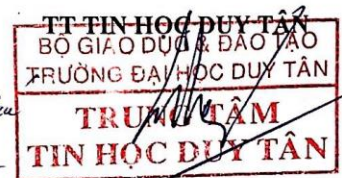 TT TIN HỌC DUY TÂN
BỘ GIÁO DỤC & ĐÀO TẠO
TRƯỜNG ĐẠI HỌC DUY TÂN
TRUNG TÂM
TIN HỌC DUY TÂN